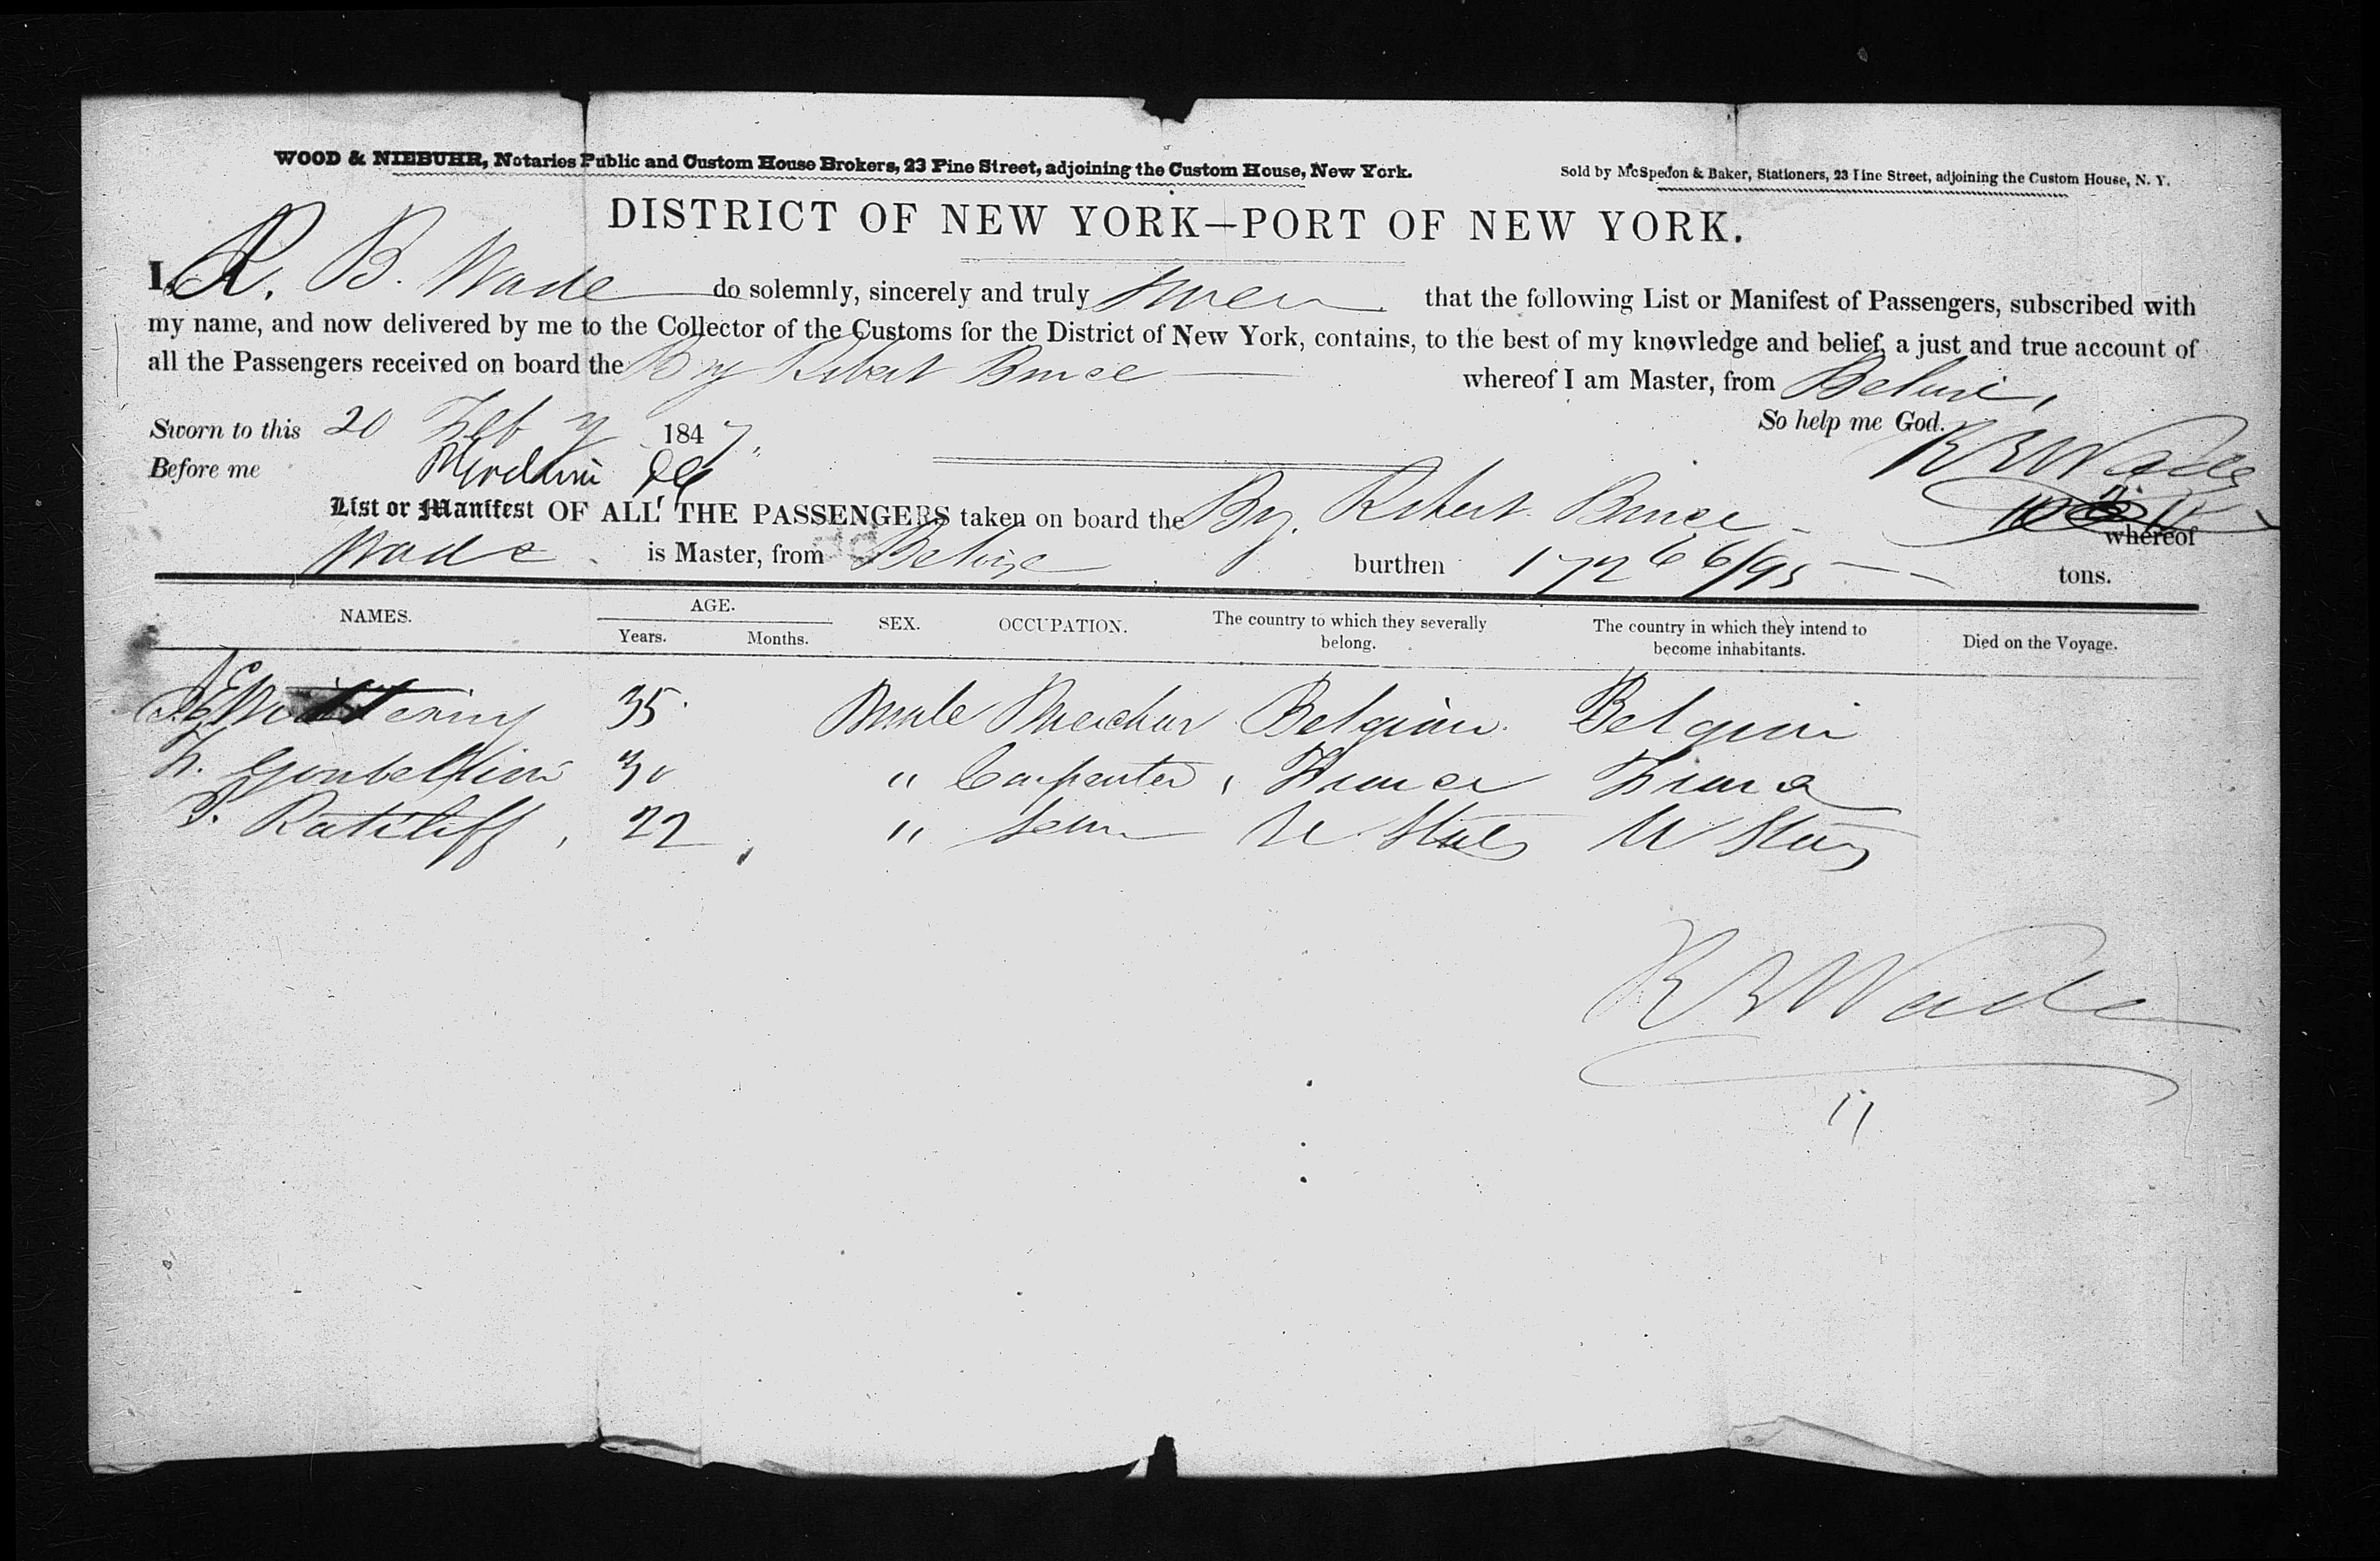 WOOD & NIEBUHR, Notaries Public and Custom House Brokers, 23 Pine Street, adjoining the Custom House, New York.
Sold by McSpedon & Baker, Stationers, 23 Pine Street, adjoining the Custom House, N. Y.
DISTRICT OF NEW YORK—PORT OF NEW YORK.
I, R. B. Wade do solemnly, sincerely and truly swear that the following List or Manifest of Passengers, subscribed with
my name, and now delivered by me to the Collector of the Customs for the District of New York, contains, to the best of my knowledge and belief, a just and true account of
all the Passengers received on board the Brig Robert Bruce whereof I am Master, from Belize,
So help me God.
Sworn to this 20 Feby 1847 R B Wade
Before me
List or Manifest OF ALL THE PASSENGERS taken on board the Bg. Robert Bruce whereof
Wade is Master, from Belize burthen 172 66/95 tons.
NAMES. AGE. SEX. OCCUPATION. The country to which they severally belong. The country in which they intend to become inhabitants. Died on the Voyage.
Years. Months.
35 Male Belgium Belgium
30 " Carpenter France France
Ratcliff, 22 " U States U States
R B Wade
11